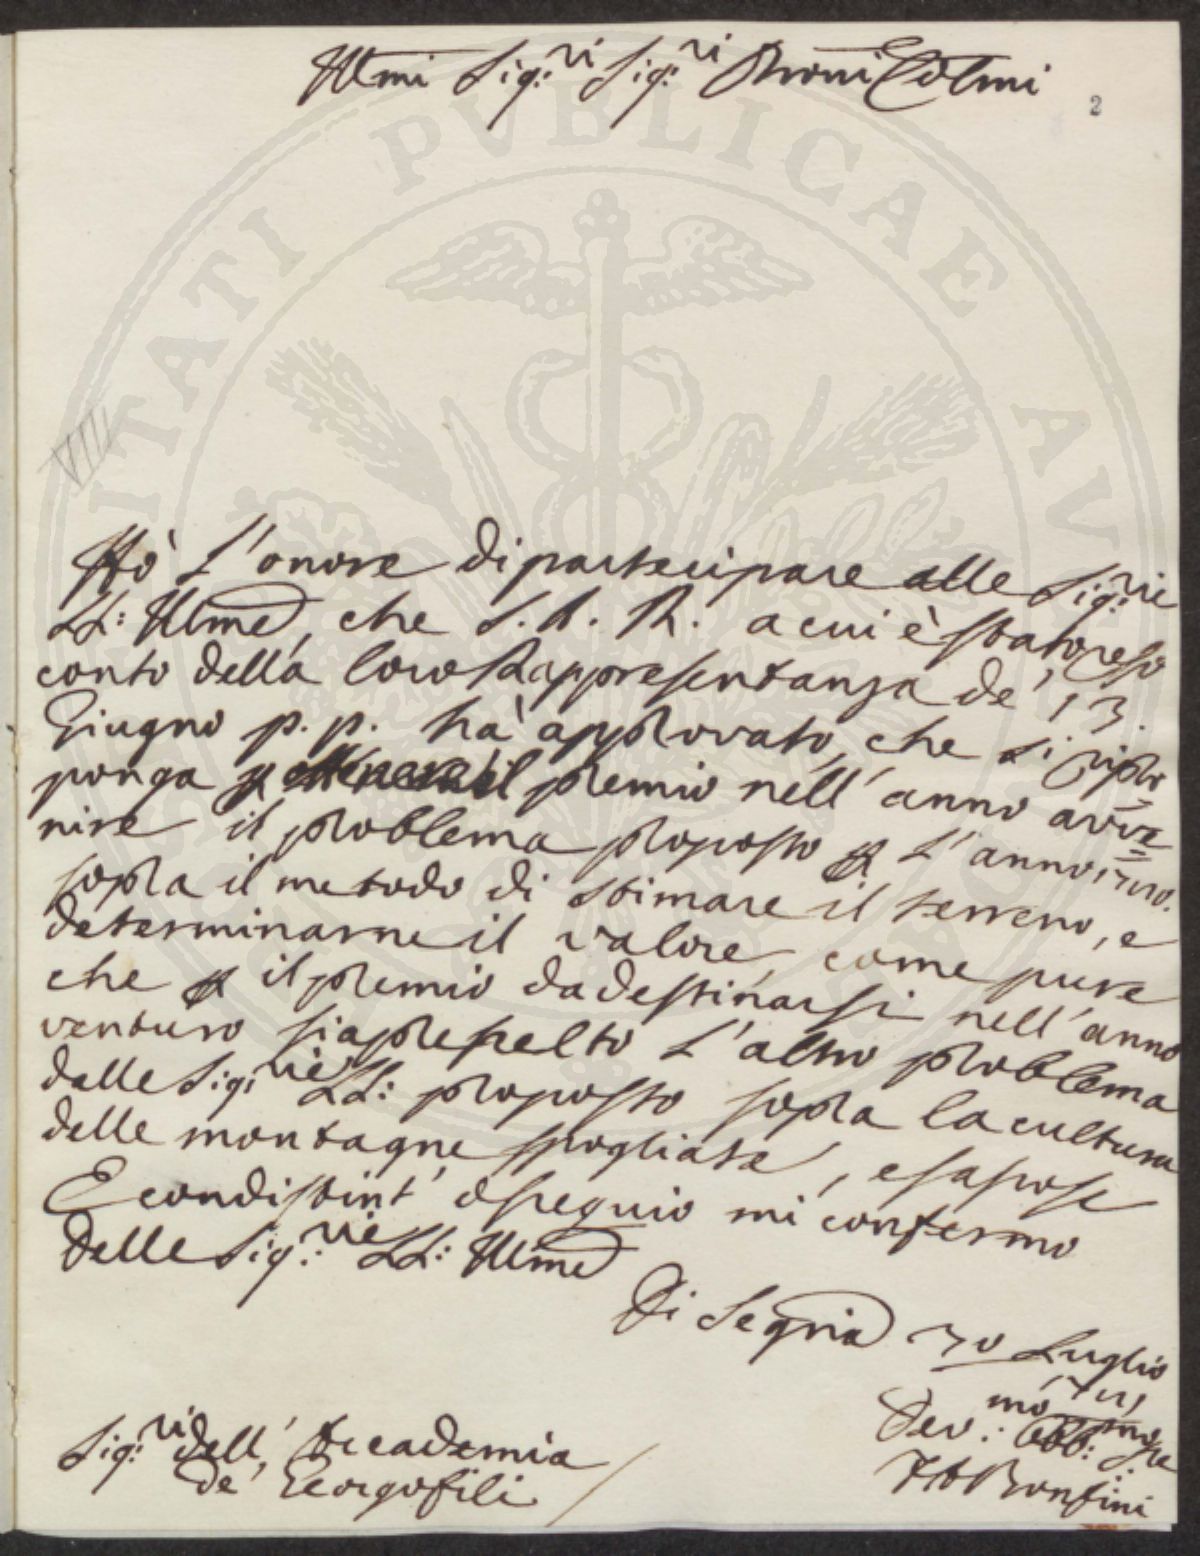 Ill.mi Sig:ri Sig:ri Proni Col.mi
2
VIII
Hò l'onore di partecipare alle Sig:rie
LL: Ill.me, che S. A. R. a cui è stato reso
conto della loro Rappresentanza de' 13.
Giugno p. p. hà approvato, che si ripro
ponga il premio nell' anno avve
nire il problema proposto p l'anno
sopra il metodo di stimare il terreno, e
determinarne il valore, come pure
che p il premio da destinarsi nell' anno
venturo sia prescelto l'altro problema
dalle Sig:rie LL: proposto sopra la cultura
delle montagne spogliate, e sassose
E con distint' ossequio mi confermo
delle Sig:rie LL: Ill.me
Di Seg.ria 30 Luglio
Dev:mo Obb: Sre
Sig:ri dell' Accademia
de' Georgofili